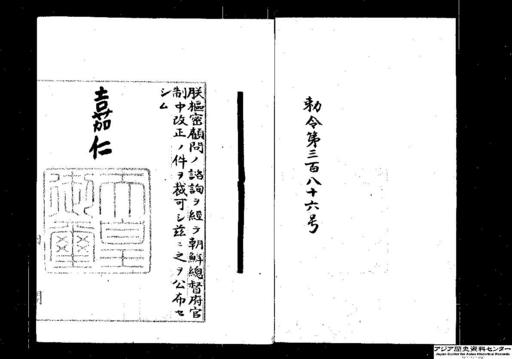 勅令第三百八十六号
朕枢密顧問ノ諮詢ヲ経テ朝鮮總督府官
制中改正ノ件ヲ裁可シ茲ニ之ヲ公布セ
シム
嘉仁
天皇
御璽
アジア歴史資料センター
Japan Center for Asian Historical Records